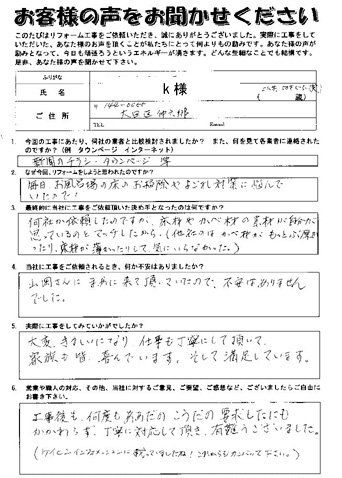 お客様の声をお聞かせください
このたびはリフォーム工事をご依頼いただき、誠にありがとうございました。実際に工事をして
いただいた、あなた様のお声を頂くことが私たちにとって何よりもの励みです。あなた様の声が
励みとなって、今日も頑張ろうというエネルギーが湧きます。どんな些細なことでも結構です。
是非、あなた様の声を聞かせて下さい。
ふりがな
氏名 k様 (歳)
ご住所 〒144-
大田区
TEL
1. 今回の工事にあたり、何社の業者と比較検討されましたか? また、何を見て各業者に連絡された
のですか?(例 タウンページ インターネット)
新聞のチラシ・タウンページ 等
2. なぜ今回、リフォームをしようと思われたのですか?
毎日、お風呂場の床のお掃除やよごれ対策に悩んで
いたので!
3. 最終的に当社に工事をご依頼いただいた決め手となったのは何ですか?
何社か依頼したのですが、床材やかべ材の素材が自分が
思っているのとマッチしたから。(他社のはかべ材がもっと厚か
ったり、床材が薄かったりして、気にいらなかった。)
4. 当社に工事をご依頼されるとき、何か不安はありましたか?
山岡さんにまめに来て頂いていたので、不安はありません
でした。
5. 実際に工事をしてみていかがでしたか?
大変、きれいになり、仕事も丁寧にして頂いて、
家族も皆、喜んでいます。そして満足しています。
6. 営業や職人の対応、その他、当社に対するご意見、ご要望、ご感想など、ございましたらご自由に
お書き下さい。
工事後も、何度もああだのこうだの要求したにも
かかわらず、丁寧に対応して頂き、有難うございました。